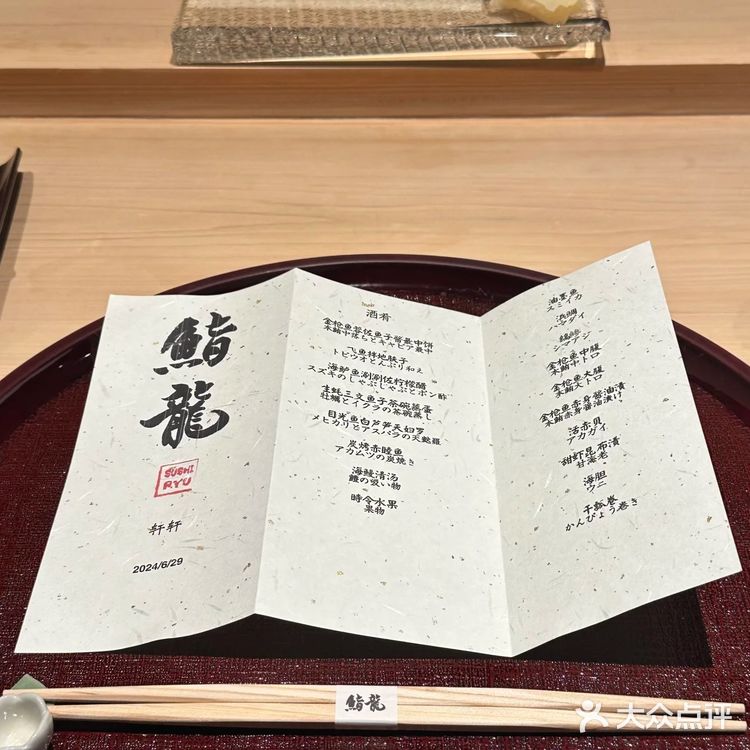 鮨
龍
SUSHI
RYU
轩轩
2024/6/29
酒肴
金枪鱼蓉佐鱼子酱最中饼
本鮪中落ちとキャビア最中
飞鱼拌地肤子
トビウオとんぶり和え
海鲈鱼涮涮佐柠檬醋
スズキのしゃぶしゃぶとポン酢
生蚝三文鱼子茶碗蒸蛋
牡蠣とイクラの茶碗蒸し
目光鱼白芦笋天妇罗
メヒカリとアスパラの天麩羅
炭烤赤睦鱼
アカムツの炭焼き
海鳗清汤
鱧の吸い物
時令水果
果物
油墨鱼
スミイカ
浜鯛
ハマダイ
縞鯵
シマアジ
金枪鱼中腹
本鮪中トロ
金枪鱼大腹
本鮪大トロ
金枪鱼赤身酱油渍
本鮪赤身醤油漬け
活赤貝
アカガイ
甜虾昆布渍
甘海老
海胆
ウニ
干瓢卷
かんぴょう巻き
鮨龍
大众点评